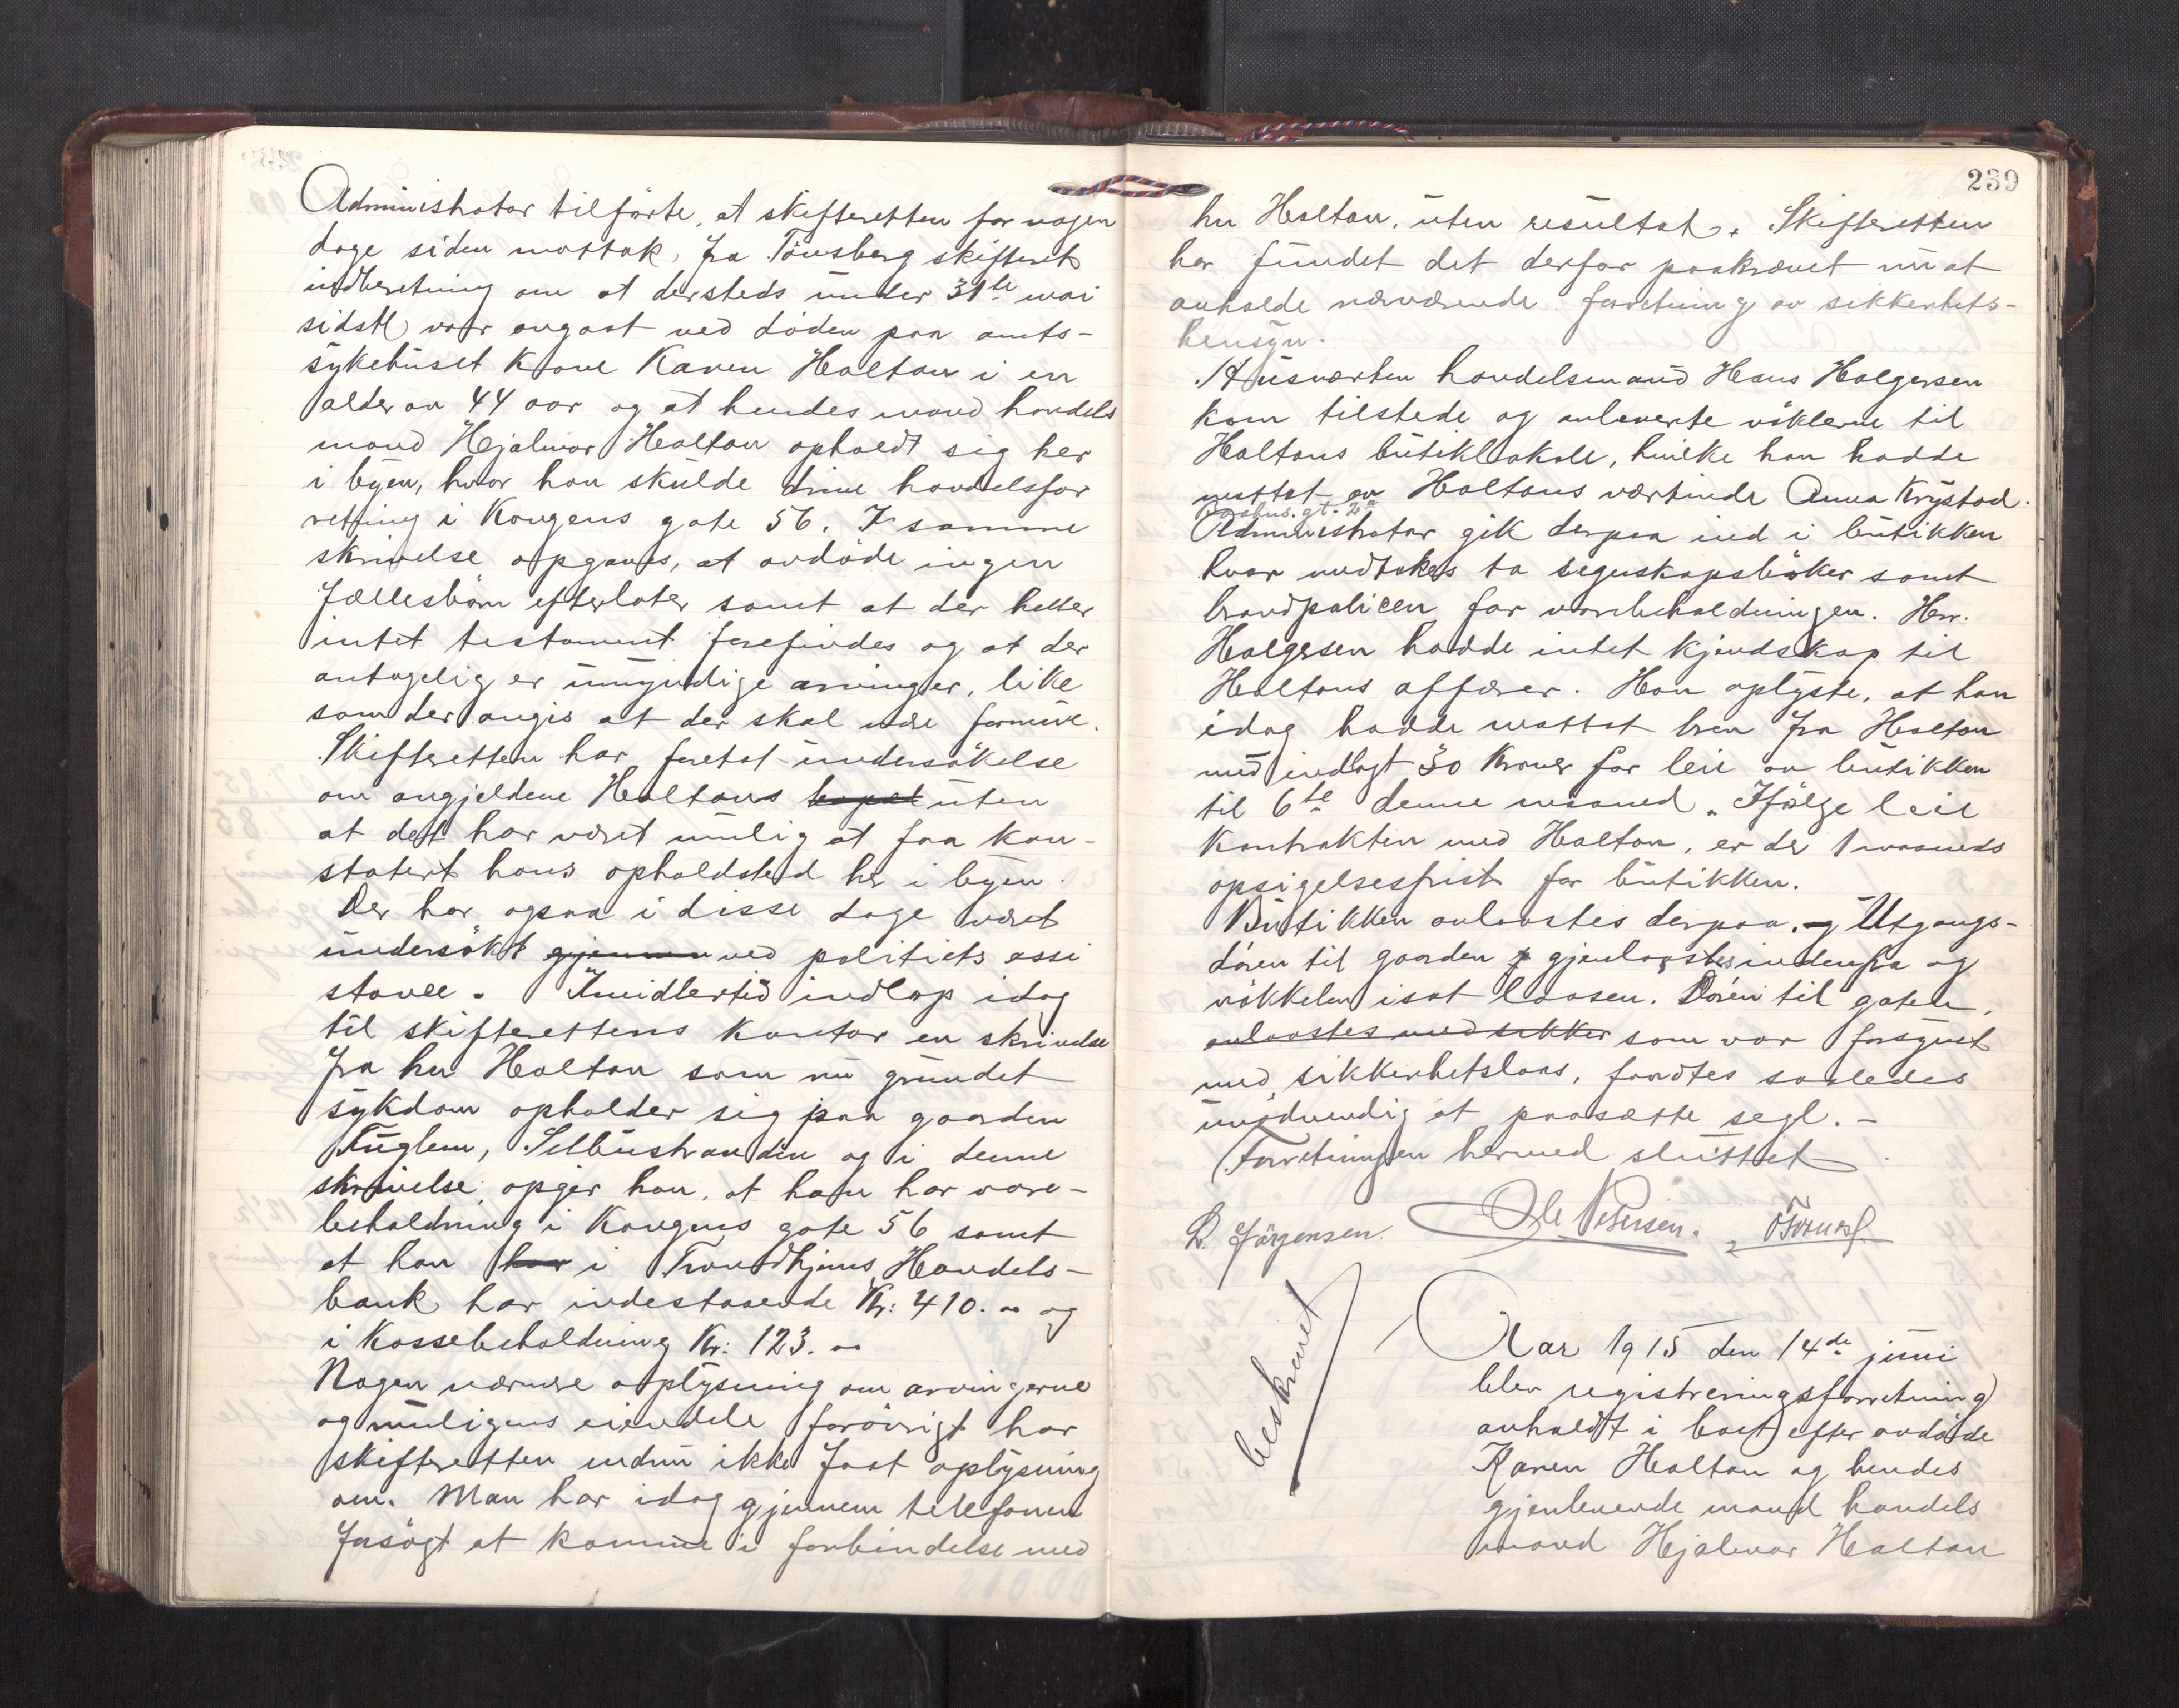 Administrator tilførte, at skifteretten for nogen
dage siden mottok, fra Tönsberg skifteret
indberetning om at dersteds under 31te mai
sidstl. var avgaat ved döden paa amts-
sykehuset Kone Karen Holtan i en
alder av 44 aar og at hendes mand handels
mand Hjalmar Holtan opholdt sig her
i byen, hvor han skulde drive handelsfor
retning i Kongens gate 56. I samme
skrivelse opgaves, at avdöde ingen
fællesbarn efterlater samt at der heller
intet testament forefindes og at der
antagelig er umyndige arvinger, like
som der angis at der skal være formue.
Skifteretten har foretat undersökelse
om angjeldene Holtans bopæl uten
at det har været mulig at faa kon-
statert hans opholdsted her i byen.
Der har ogsaa i disse dage været
undersökt gjennem ved politiets assi
stance. Imidlertid indlöp idag
til skifterettens kontor en skrivelse
fra hr Holtan som nu grundet
sykdom opholder sig paa gaarden
Fuglem, Selbustranden og i denne
skrivelse opgir han, at han har vare-
beholdning i Kongens gate 56 samt
at han har i Trondhjems Handels-
bank har indestaaende Kr: 410.00 og
i Kassebeholdning Kr: 123.00
Nogen nærmere oplysning om arvingerne
og muligens eiendele forövrigt har
skifteretten endnu ikke faat oplysning
om. Man har idag gjennem telefonen
forsögt at komme i forbindelse med
239
hr Holtan, uten resultat. Skifteretten
har fundet det derfor paakrævet nu at
avholde nærværende forretning av sikkerhets-
hensyn.
Husværten handelsmand Hans Holgersen
kom tilstede og avleverte nöklerne til
Holtans butiklokale, hvilke han hadde
mottat av Holtans værtinde Anna Krystad.
gt. 2a
Administrator gik derpaa ind i butikken
hvor medtokes to regnskapsböker samt
brandpolicen for varebeholdningen. Herr.
Holgersen hadde intet kjendskap til
Holtans affærer. Han oplyste, at han
idag hadde mottat brev fra Holtan
med indlagt 30 Kroner for leie av butikken
til 6te denne maaned. Ifølge leie
kontrakten med Holtan, er der 1 maaneds
opsigelsesfrist for butikken.
Butikken avlaastes derpaa. og Utgangs-
dören til gaarden gjenlaastes indenfra og
nökkelen isat laasen. Dören til gaten,
avlaastes med sikker som var forsynet
med sikkerhetslaas, fandtes saaledes
unödvendig at paasætte segl. -
Forretningen hermed sluttet
D. Jörgensen. Ole Petersen.
beskrevet
Aar 1915 den 14de juni
blev registreringsforretning
avholdt i boet efter avdöde
Karen Holtan og hendes
gjenlevende mand handels
mand Hjalmar Holtan